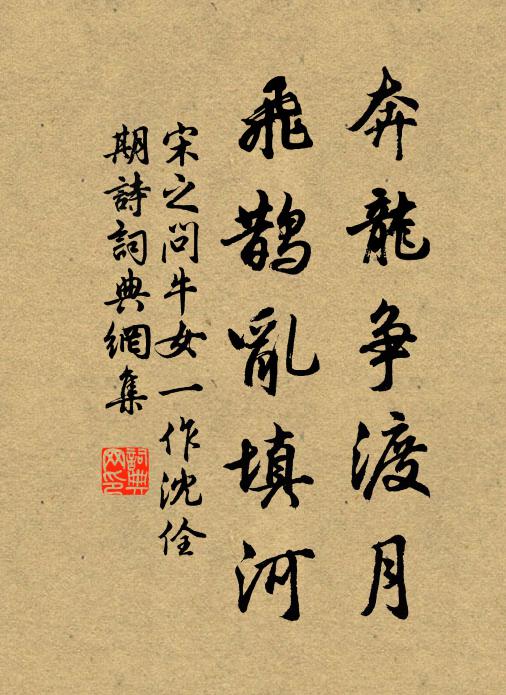 奔龍争渡月
飛鵲亂填河
宋之問牛女一作沈佺
期詩詞典網集
詞典网印